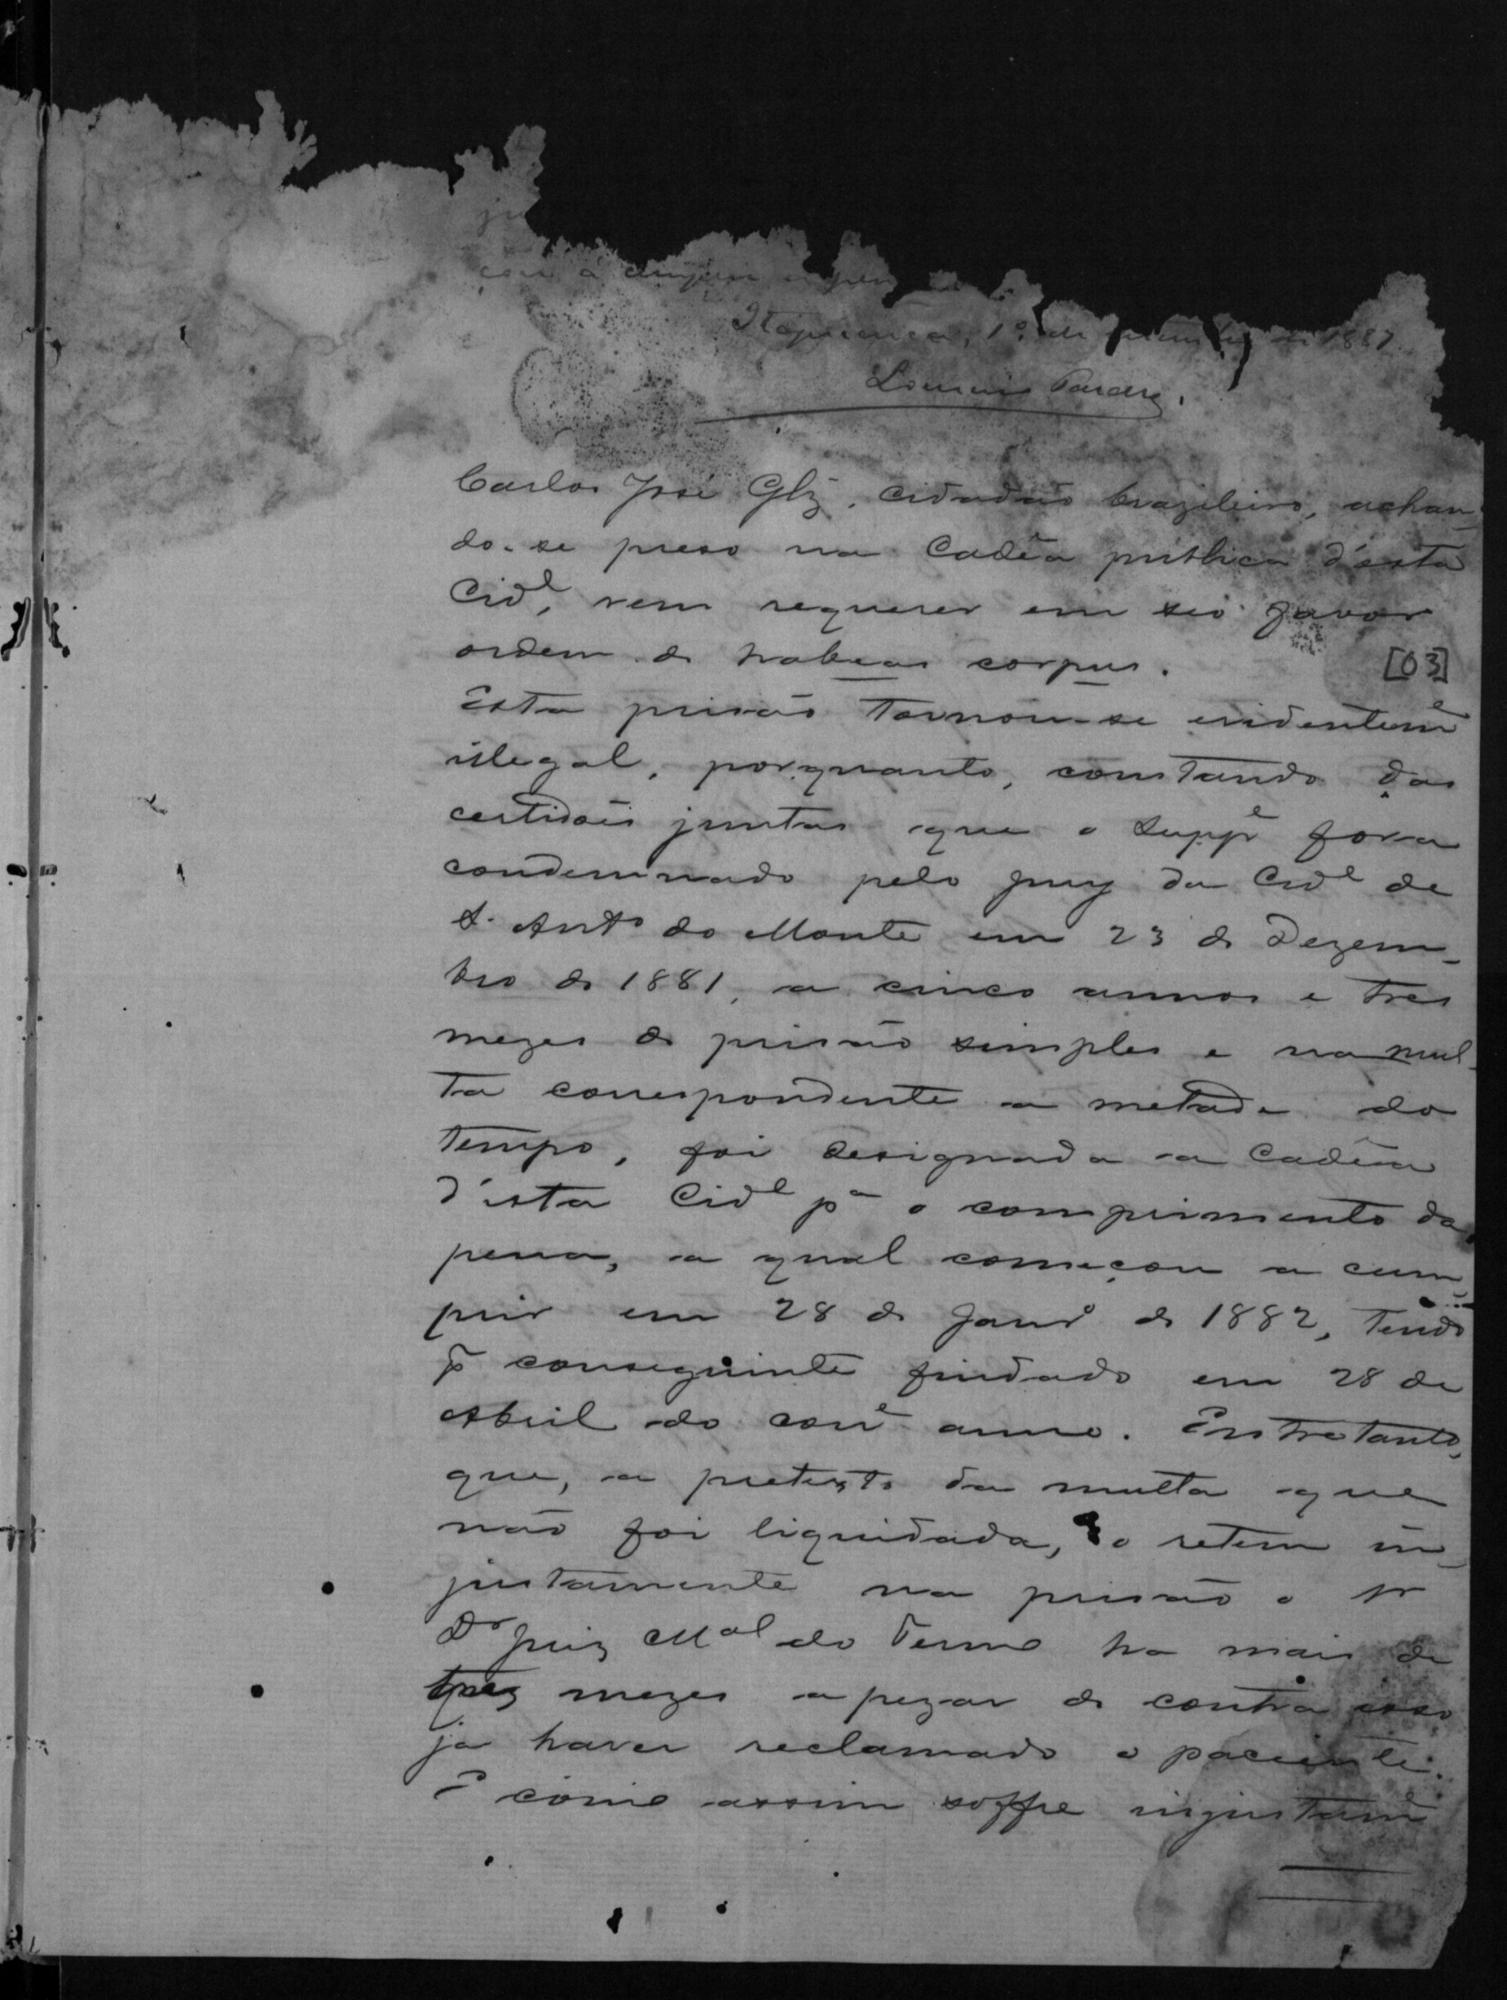 ju
çou á
Itapecerica, 1º. de Setembro de 1887.
Carlos José Glz, Cidadão brazileiro, achan-
do-se preso na Cadêa publica d'esta
Cidᵉ, vem requerer em seo favor
ordem de habeas corpus.
[03]
Esta prisão tornou-se evidentemᵉ
illegal, porquanto, constando das
certidões juntas que o suppᵉ fora
condemnado pelo jury da Cidᵉ de
S. Antº do Monte em 23 de Dezem-
bro de 1881, a cinco annos e tres
mezes de prisão simples e na mul-
ta correspondente a metade do
tempo, foi designada a Cadêa
d'esta Cidᵉ pª o comprimento da
pena, a qual começou a cum-
prir em 28 de Janrº de 1882, tendo
pʳ conseguinte findado em 28 de
Abril do corrᵉ anno. Entretanto,
que, a pretexto da multa que
não foi liquidada, o retem in-
justamente na prisão o Sr
Dr Juiz Mᵃˡ do Termo ha mais de
tres mezes apezar de contra isso
ja haver reclamado o paciente.
E como assim soffre injustamᵉ